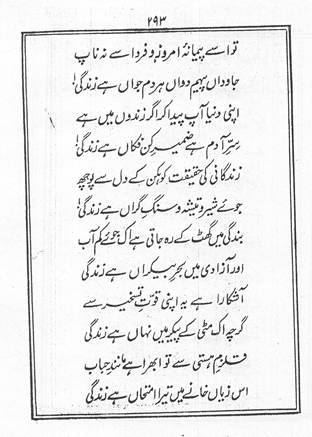 ۲۹۳
تو اسے پیمانۂ امروز و فردا سے نہ ناپ
جاوداں پیہم دواں ہر دم جواں ہے زندگی!
اپنی دنیا آپ پیدا کر اگر زندوں میں ہے
سرِّ آدم ہے ضمیرِ کن فکاں ہے زندگی!
زندگانی کی حقیقت کوہکن کے دل سے پوچھ
جوئے شیر و تیشہ و سنگِ گراں ہے زندگی!
بندگی میں گھٹ کے رہ جاتی ہے اک جوئے کم آب
اور آزادی میں بحرِ بیکراں ہے زندگی
آشکارا ہے یہ اپنی قوتِ تسخیر سے
گرچہ اک مٹی کے پیکر میں نہاں ہے زندگی
قلزمِ ہستی سے تو ابھرا ہے مانندِ حباب
اس زیاں خانے میں تیرا امتحاں ہے زندگی